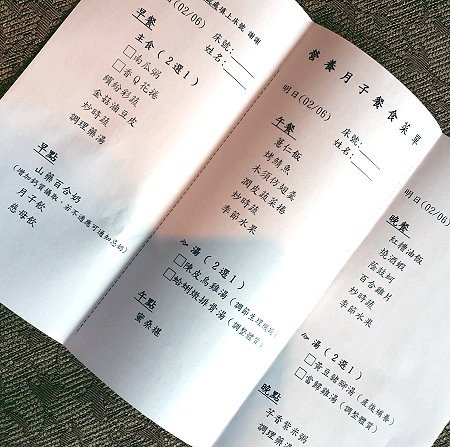 處填上床號 謝謝
(02/06)
床號:
姓名:
早餐
主食(2選1)
□南瓜粥
□香Q花捲
繽紛彩蔬
金菇滷豆皮
炒時蔬
調理藥湯
早點
山藥百合奶
(增加鈣質攝取，若不適應可通知忌奶)
月子飲
慈母飲
營養月子餐食菜單
明日(02/06)
床號:
姓名:
午餐
薏仁飯
烤鯖魚
木須仿翅羹
潤皮蔬菜捲
炒時蔬
季節水果
湯(2選1)
□陳皮烏雞湯(調節生理機能)
□蛤蜊燉排骨湯(調整體質)
午點
蜜桑椹
明日(02/06)
晚餐
紅糟油飯
燒酒蝦
蔭豉蚵
百合雞片
炒時蔬
季節水果
湯(2選1)
□黃豆豬腳湯(產後補養)
□當歸雞湯(調整體質)
晚點
芋香紫米粥
調理藥湯